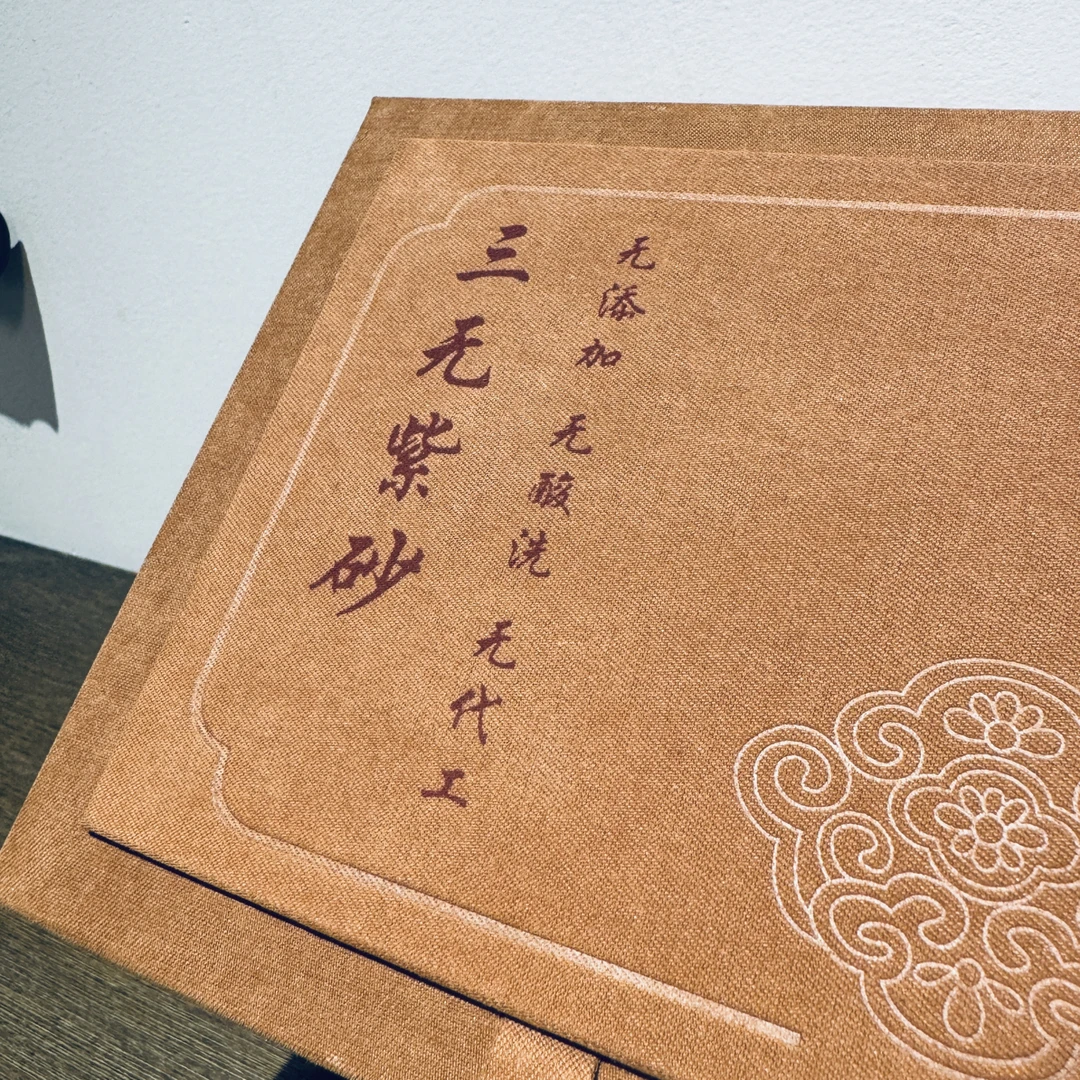 三无紫砂
无添加 无酸洗 无代工